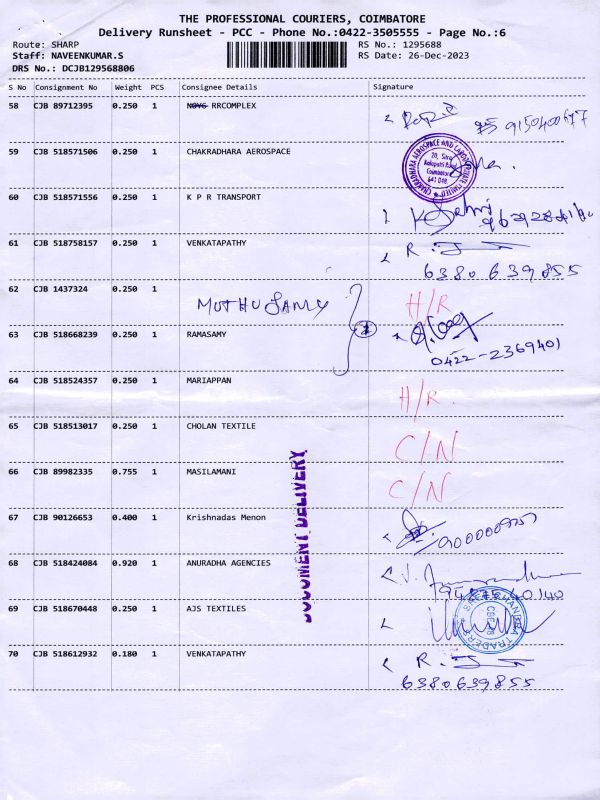 THE PROFESSIONAL COURIERS, COIMBATORE
Delivery Runsheet - PCC - Phone No.:0422-3505555 - Page No.:6
Route: SHARP
RS No.: 1295688
Staff: NAVEENKUMAR.S
RS Date: 26-Dec-2023
DRS No.: DCJB129568806
S No Consignment No Weight PCS Consignee Details Signature
58 CJB 89712395 0.250 1 RRCOMPLEX
59 CJB 518571506 0.250 1 CHAKRADHARA AEROSPACE
60 CJB 518571556 0.250 1 K P R TRANSPORT
61 CJB 518758157 0.250 1 VENKATAPATHY R.
6380639855
62 CJB 1437324 0.250 1 H/R
MUTHUSAMY
63 CJB 518668239 0.250 1 RAMASAMY
0422-2369401
64 CJB 518524357 0.250 1 MARIAPPAN H/R.
65 CJB 518513017 0.250 1 CHOLAN TEXTILE C/N
66 CJB 89982335 0.755 1 MASILAMANI C/N
DOCUMENT DELIVERY
67 CJB 90126653 0.400 1 Krishnadas Menon
68 CJB 518424084 0.920 1 ANURADHA AGENCIES
69 CJB 518670448 0.250 1 AJS TEXTILES
70 CJB 518612932 0.180 1 VENKATAPATHY R.
6380639855